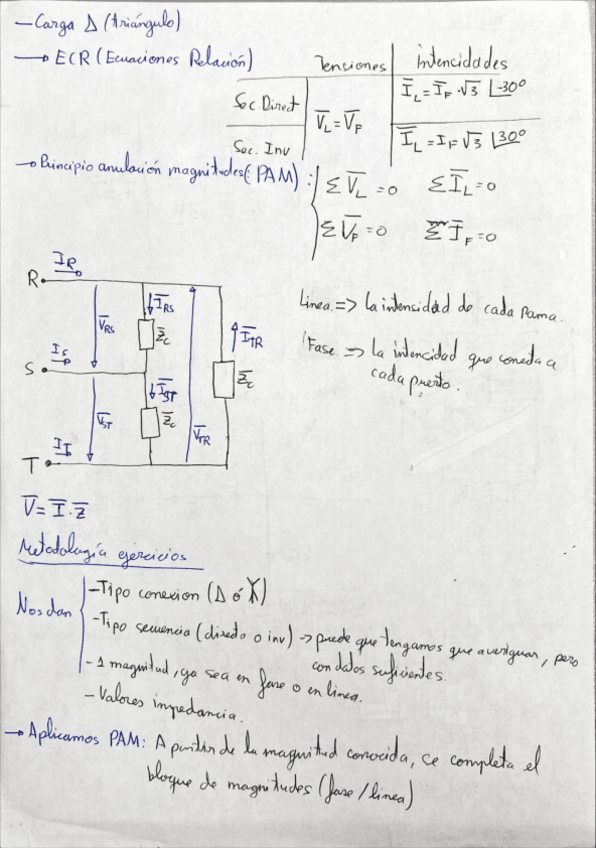 - Carga Δ (triángulo)
→ ECR (Ecuaciones Relación)
Tenciones intencidades
Sec. Direct V̅L = V̅F I̅L = I̅F · √3 ∠-30°
Sec. Inv I̅L = IF √3 ∠30°
→ Principio anulación magnitudes (PAM) : Σ V̅L = 0 Σ I̅L = 0
Σ V̅F = 0 Σ I̅F = 0
I̅R
R
V̅RS I̅RS Z̅c I̅TR Z̅c
I̅S
S
V̅ST I̅ST Z̅c V̅TR
I̅T
T
Linea => la intensidad de cada rama.
Fase => la intencidad que conecta a
cada puerto.
V̅ = I̅ · Z̅
Metodología ejercicios
Nos dan
- Tipo conexion (Δ ó Y)
- Tipo secuencia (directo o inv) → puede que tengamos que averiguar, pero
con datos suficientes.
- 1 magnitud, ya sea en fase o en linea.
- Valores impedancia.
→ Aplicamos PAM: A partir de la magnitud conocida, ce completa el
bloque de magnitudes (fase / linea)